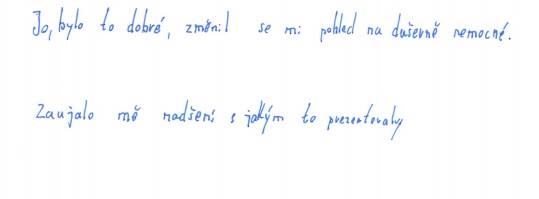 Jo, bylo to dobré, změnil se mi pohled na duševně nemocné.
Zaujalo mě nadšení s jakým to prezentovaly